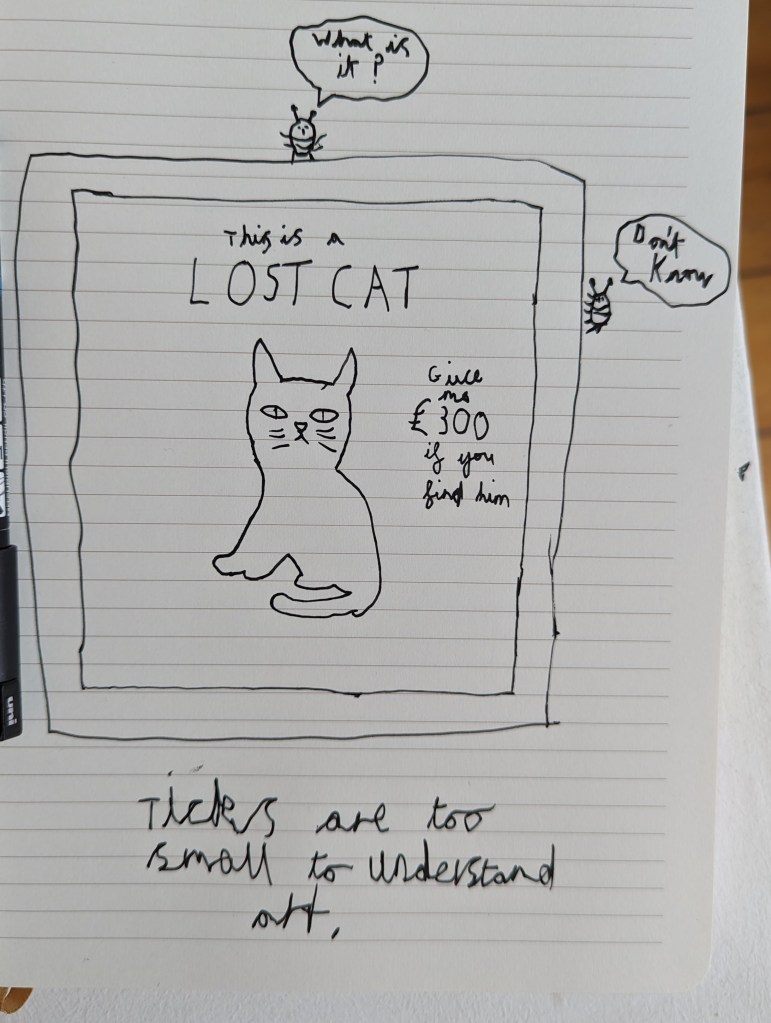 What is
it?
Don't
Know
This is a
LOST CAT
Give
me
£300
if you
find him
Ticks are too
small to understand
art.
uni